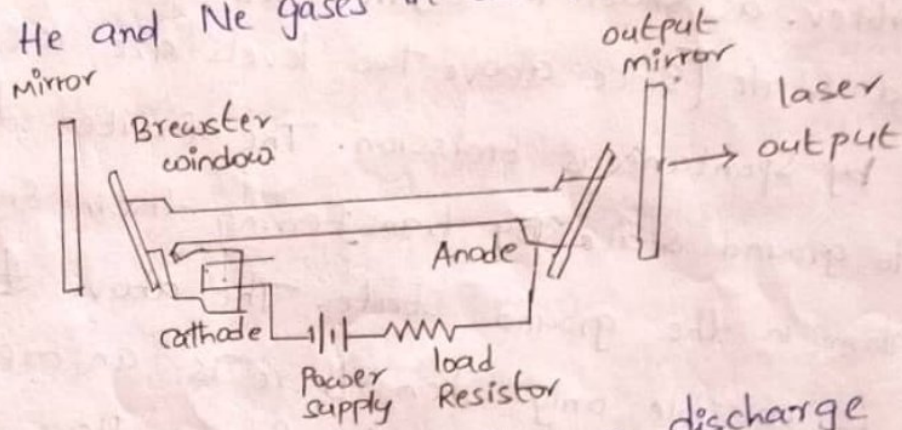 He and Ne gases
Mirror
Brewster
window
output
mirror
laser
output
Anode
cathode
Power
supply
load
Resistor
discharge